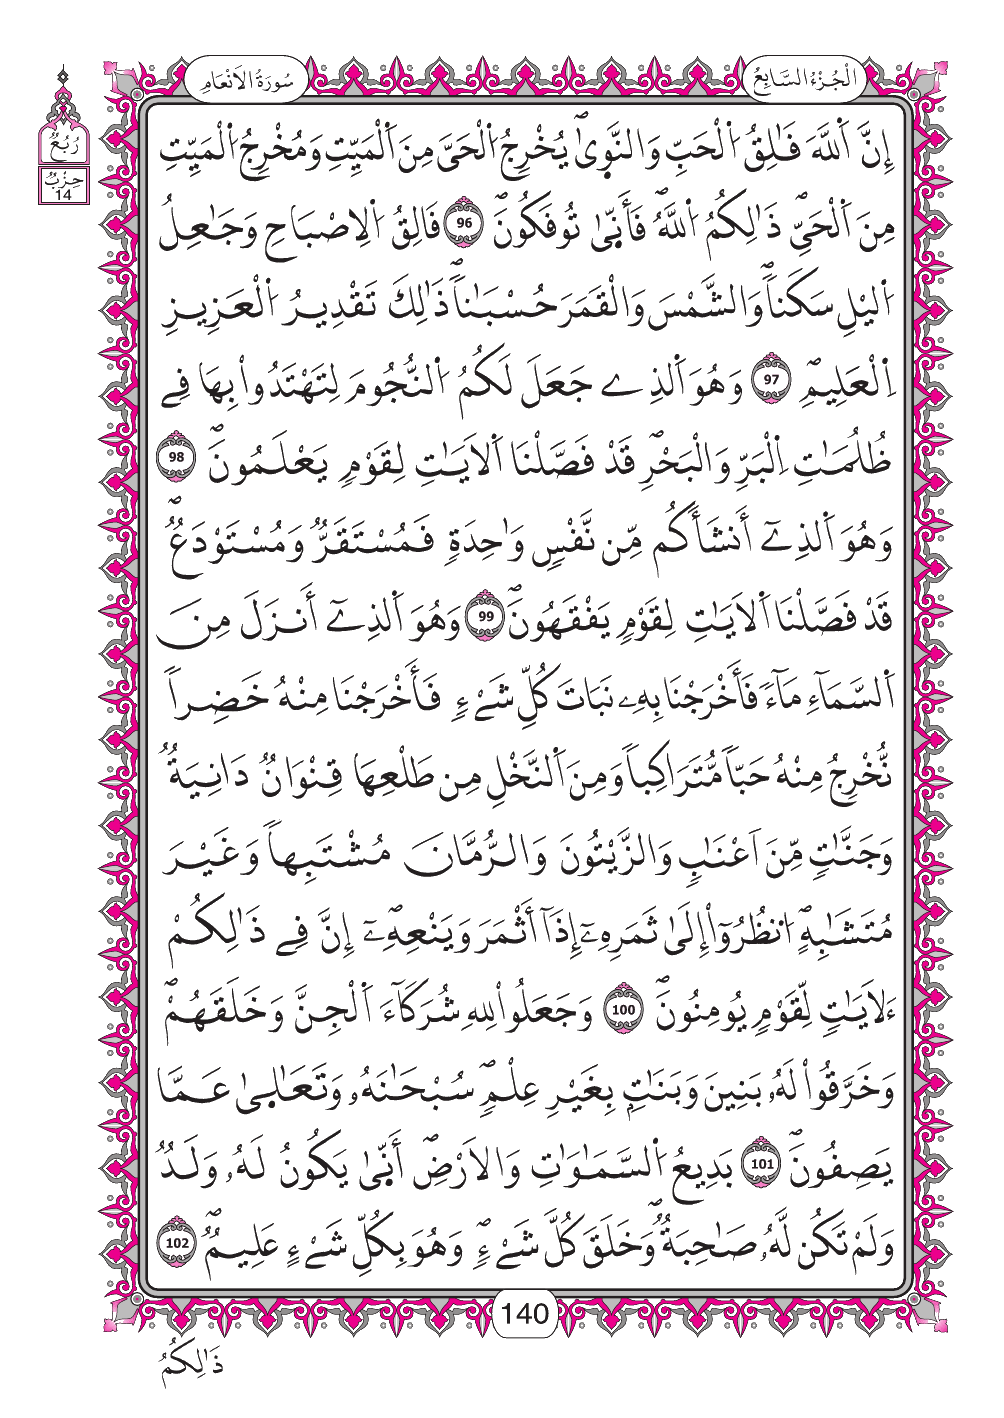 الْجُزْءُ السَّابِعُ
سُورَةُ الَانْعَامِ
رُبُعُ
حِزْبٌ
14
إِنَّ اَ۬للَّهَ فَٰلِقُ اُ۬لْحَبِّ وَالنَّو۪ىٰۖ يُخْرِجُ اُ۬لْحَيَّ مِنَ اَ۬لْمَيِّتِ وَمُخْرِجُ اُ۬لْمَيِّتِ
مِنَ اَ۬لْحَيِّۖ ذَٰلِكُمُ اُ۬للَّهُۖ فَأَنّ۪ىٰ تُوفَكُونَۖ 96 فَالِقُ اُ۬لِاصْبَاحِ وَجَٰعِلُ
اُ۬ليْلِ سَكَناٗۖ وَالشَّمْسَ وَالْقَمَرَ حُسْبَٰناٗۖ ذَٰلِكَ تَقْدِيرُ اُ۬لْعَزِيزِ
اِ۬لْعَلِيمِۖ 97 وَهُوَ اَ۬لذِے جَعَلَ لَكُمُ اُ۬لنُّجُومَ لِتَهْتَدُواْ بِهَا فِے
ظُلُمَٰتِ اِ۬لْبَرِّ وَالْبَحْرِۖ قَدْ فَصَّلْنَا اَ۬لَايَٰتِ لِقَوْمٖ يَعْلَمُونَۖ 98
وَهُوَ اَ۬لذِےٓ أَنشَأَكُم مِّن نَّفْسٖ وَٰحِدَةٖ فَمُسْتَقَرّٞ وَمُسْتَوْدَعٞۖ
قَدْ فَصَّلْنَا اَ۬لَايَٰتِ لِقَوْمٖ يَفْقَهُونَۖ 99 وَهُوَ اَ۬لذِےٓ أَنزَلَ مِنَ
اَ۬لسَّمَآءِ مَآءٗ فَأَخْرَجْنَا بِهِۦ نَبَاتَ كُلِّ شَےْءٖ فَأَخْرَجْنَا مِنْهُ خَضِراٗ
نُّخْرِجُ مِنْهُ حَبّاٗ مُّتَرَاكِباٗ وَمِنَ اَ۬لنَّخْلِ مِن طَلْعِهَا قِنْوَانٞ دَانِيَةٞ
وَجَنَّٰتٖ مِّنَ اَعْنَٰبٖ وَالزَّيْتُونَ وَالرُّمَّانَ مُشْتَبِهاٗ وَغَيْرَ
مُتَشَٰبِهٍۖ اُ۟نظُرُوٓاْ إِلَىٰ ثَمَرِهِۦٓ إِذَآ أَثْمَرَ وَيَنْعِهِۦٓۖ إِنَّ فِے ذَٰلِكُمْ
ءَلَايَٰتٖ لِّقَوْمٖ يُومِنُونَۖ 100 وَجَعَلُواْ لِلهِ شُرَكَآءَ اَ۬لْجِنَّ وَخَلَقَهُمْۖ
وَخَرَّقُواْ لَهُۥ بَنِينَ وَبَنَٰتِۢ بِغَيْرِ عِلْمٖۖ سُبْحَٰنَهُۥ وَتَعَٰل۪ىٰ عَمَّا
يَصِفُونَۖ 101 بَدِيعُ اُ۬لسَّمَٰوَٰتِ وَالَارْضِۖ أَنّ۪ىٰ يَكُونُ لَهُۥ وَلَدٞ
وَلَمْ تَكُن لَّهُۥ صَٰحِبَةٞۖ وَخَلَقَ كُلَّ شَےْءٖۖ وَهُوَ بِكُلِّ شَےْءٍ عَلِيمٞۖ 102
140
ذَٰلِكُمُ